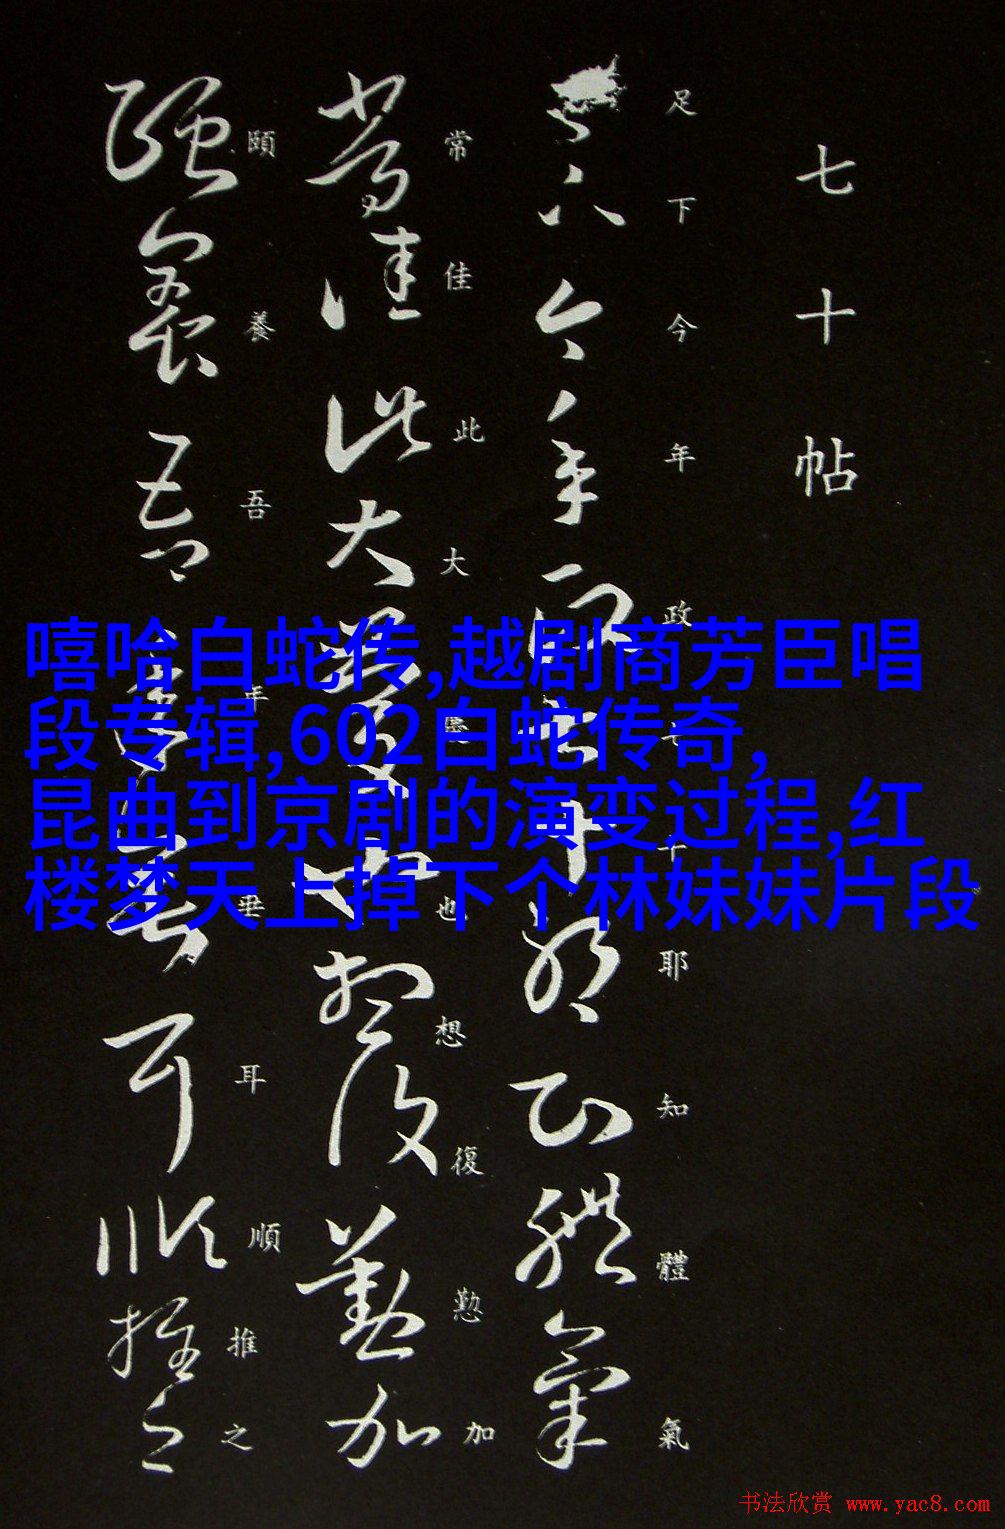 七十帖
足下今年政七十耶知體氣
常佳此大慶也想復懃加
頤養吾年垂耳順推之
嘻哈白蛇传,越剧商芳臣唱
段专辑,602白蛇传奇,
昆曲到京剧的演变过程,红
楼梦天上掉下个林妹妹片段
书法欣赏 www.yac8.com